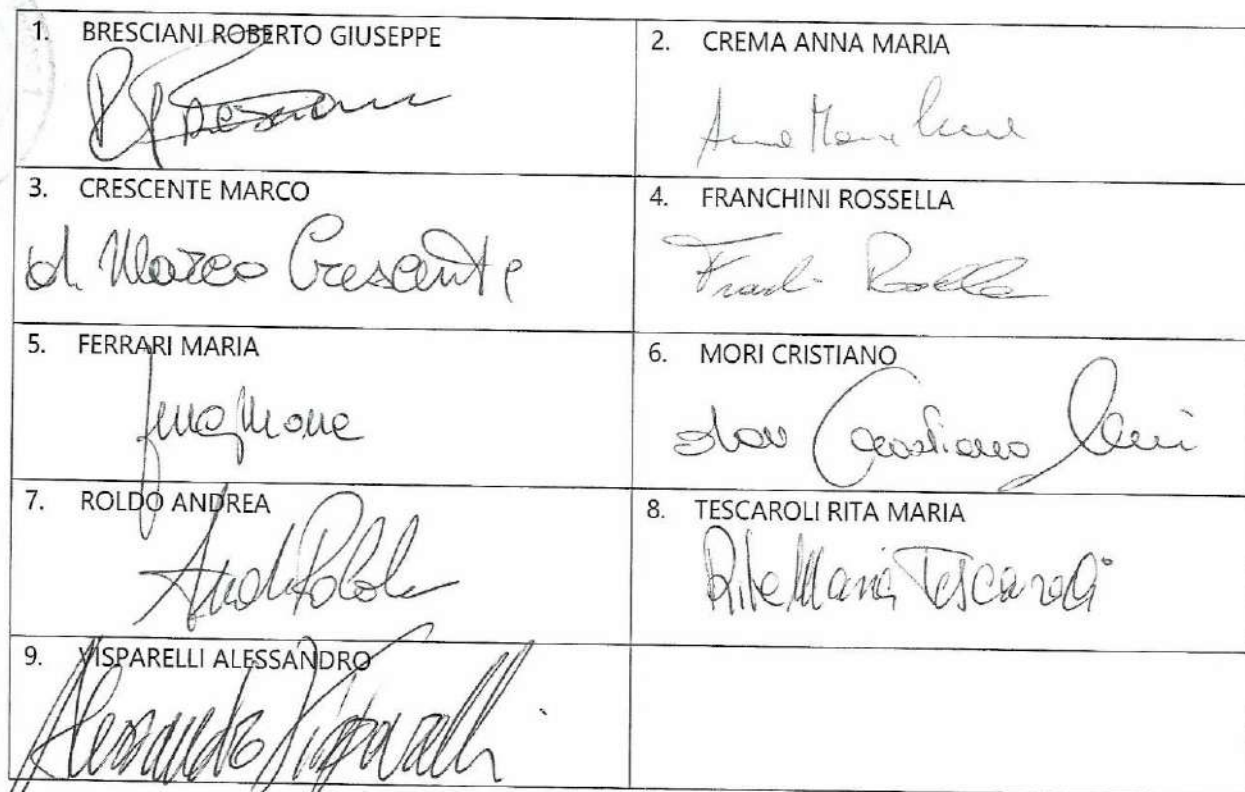 1. BRESCIANI ROBERTO GIUSEPPE
2. CREMA ANNA MARIA
Anna Maria
3. CRESCENTE MARCO
d. Marco Crescente
4. FRANCHINI ROSSELLA
5. FERRARI MARIA
6. MORI CRISTIANO
don Cristiano Mori
7. ROLDO ANDREA
8. TESCAROLI RITA MARIA
Rita Maria Tescaroli
9. VISPARELLI ALESSANDRO
Alessandro Visparelli